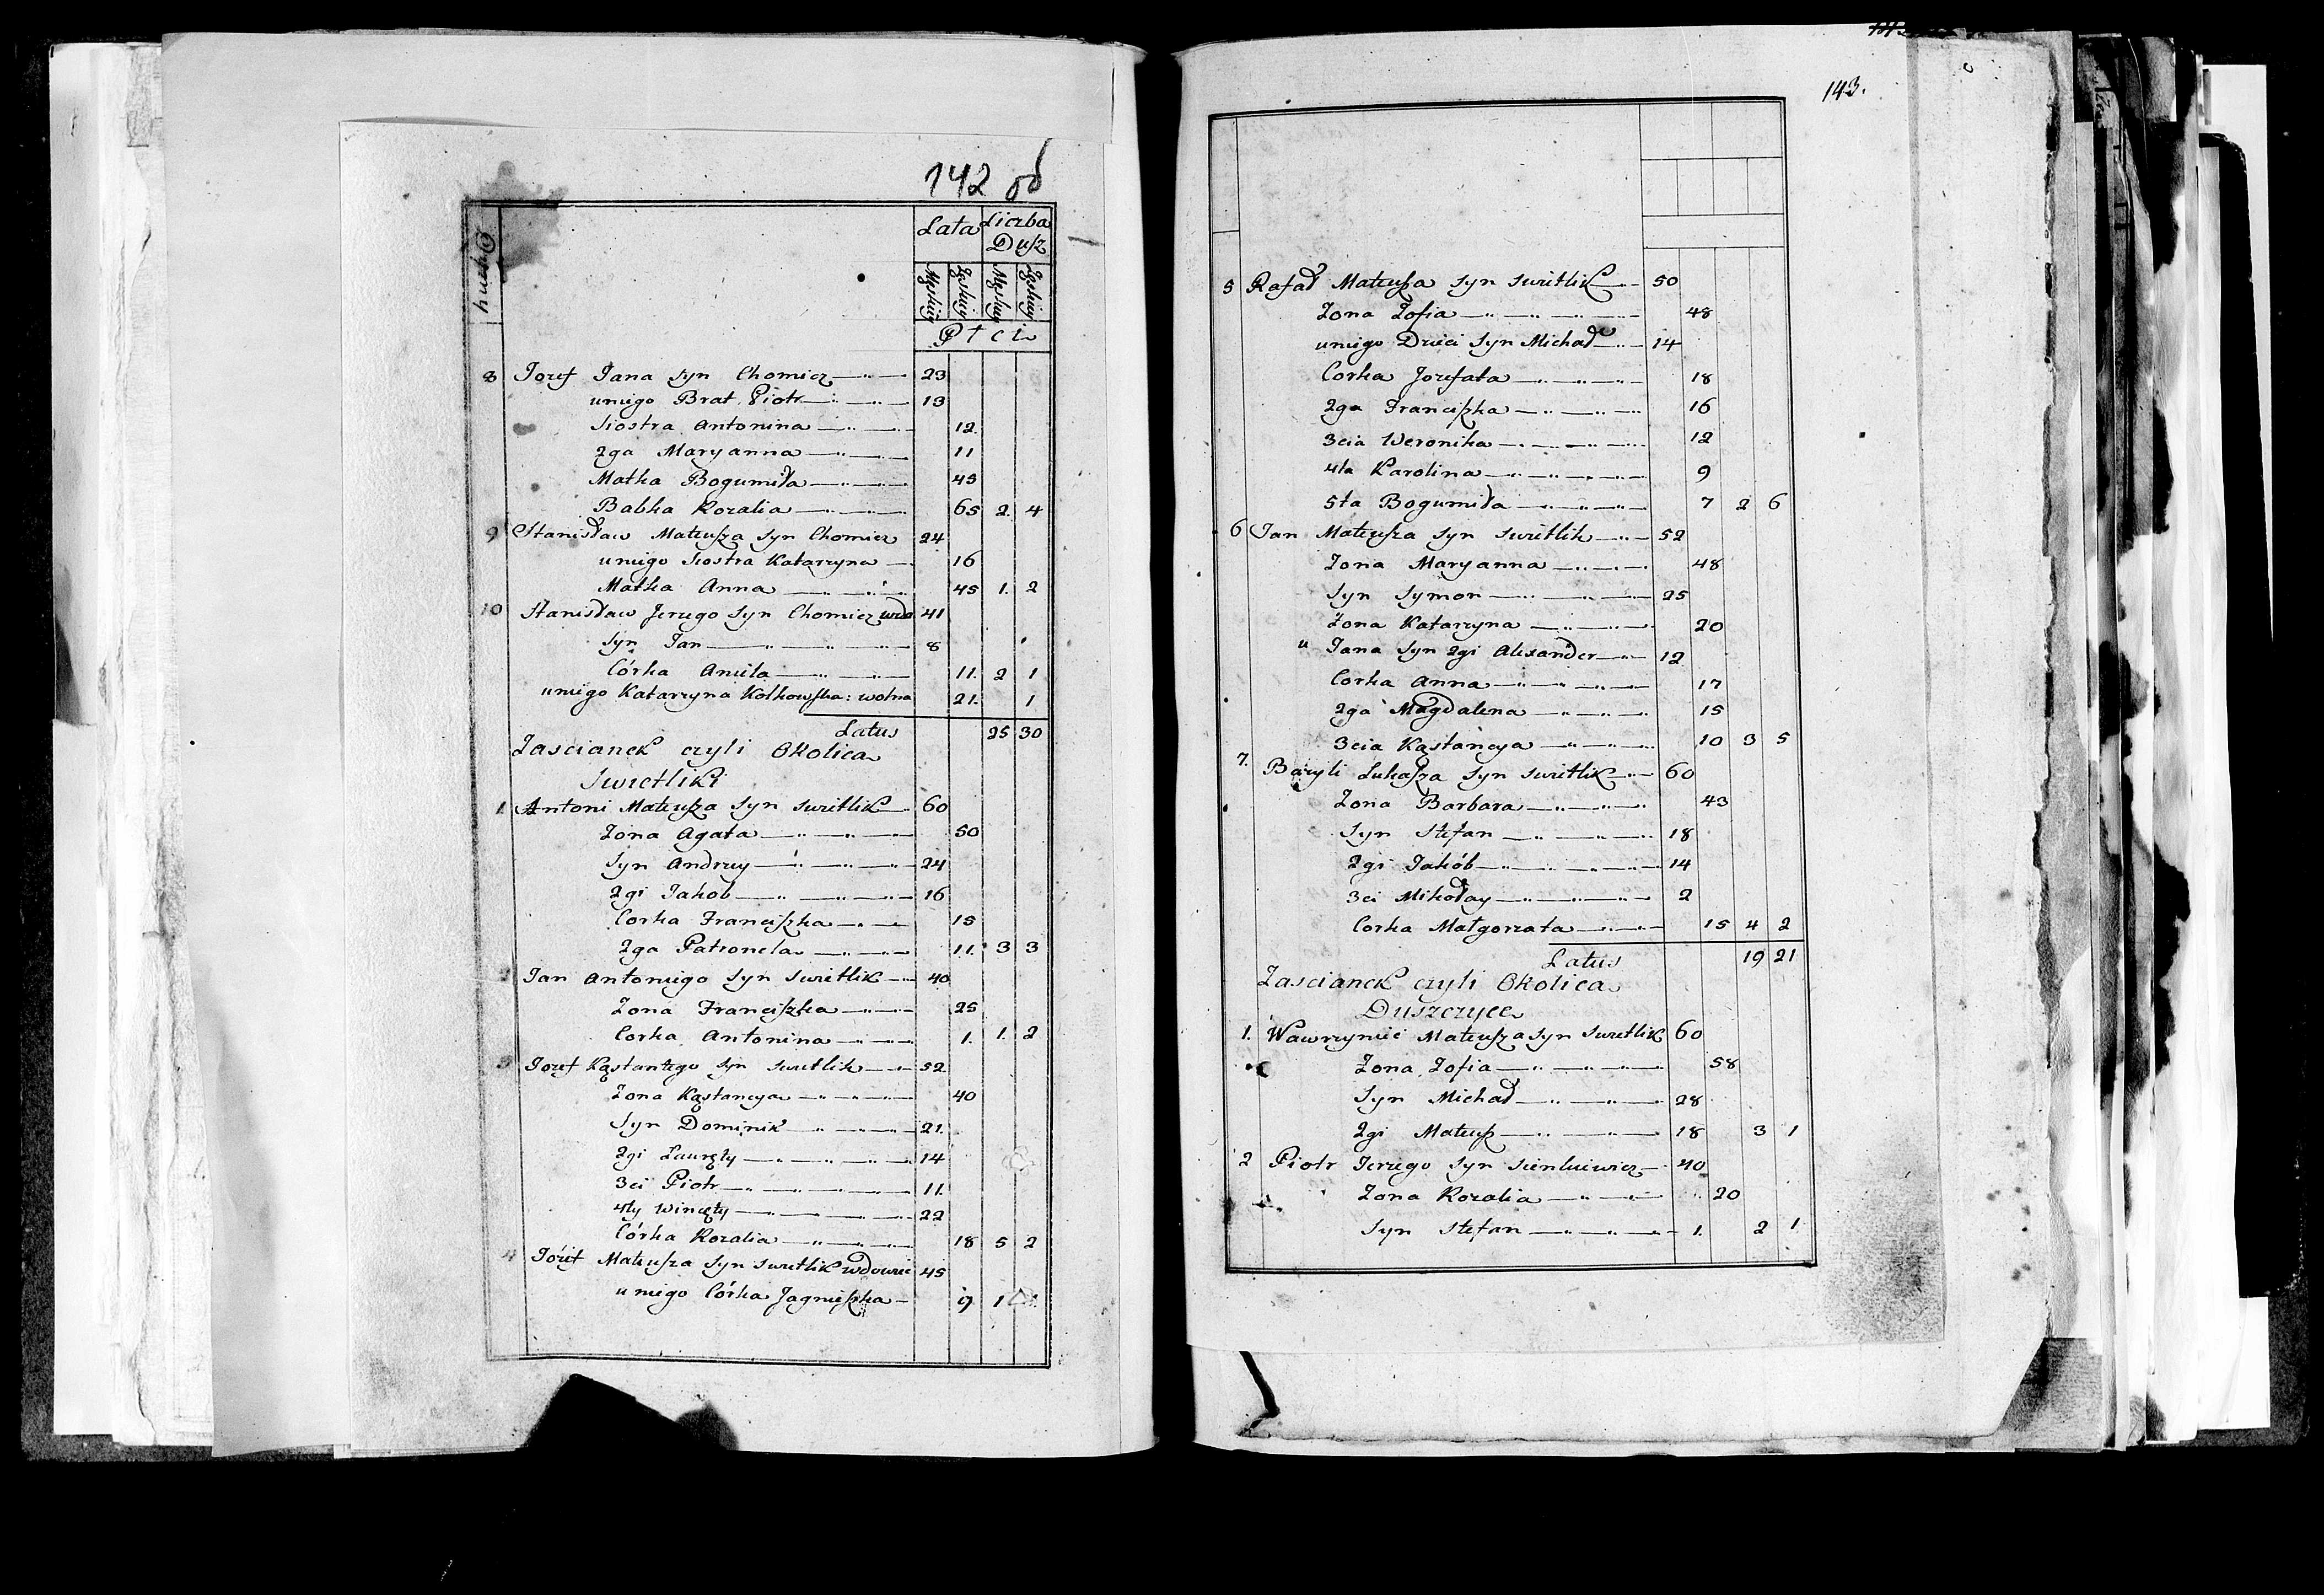 142 об
Dymy
Lata Liczba Dusz
Męskiey Żęskiey Męskiey Żęskiey
Płci
8 Jozef Jana syn Chomicz 23
u niego Brat Piotr 13
Siostra Antonina 12
2ga Maryanna 11
Matka Bogumiła 43
Babka Rozalia 65 2 4
9 Stanisław Mateusza syn Chomicz 24
u niego Siostra Katarzyna 16
Matka Anna 45 1 2
10 Stanisław Jerzego syn Chomicz wdo 41
Syn Jan 8
Córka Aniela 11 2 1
u niego Katarzyna Kołkowska: wolna 21 1
Latus 25 30
Zascianek czyli Okolica
Swietliki
1 Antoni Mateusza syn Swietlik 60
Zona Agata 50
Syn Andrzey 24
2gi Jakob 16
Corka Franciszka 15
2ga Patronela 11 3 3
2 Jan Antoniego syn Swietlik 40
Zona Franciszka 25
Corka Antonina 1 1 2
3 Jozef Kąstantego syn Swietlik 52
Zona Kąstancya 40
Syn Dominik 21
2gi Lauręty 14
3ci Piotr 11
4ty Wincęty 22
Córka Rozalia 18 5 2
4 Józef Mateusza syn Swietlik wdowiec 45
u niego Córka Jagnieszka 9 1
143.
5 Rafał Mateusza syn Swietlik 50
Zona Zofia 48
u niego Dzieci Syn Michał 14
Corka Jozefata 18
2ga Franciszka 16
3cia Weronika 12
4ta Karolina 9
5ta Bogumiła 7 2 6
6 Jan Mateusza syn Swietlik 52
Zona Maryanna 48
Syn Symon 25
Zona Katarzyna 20
u Jana Syn 2gi Alexander 12
Corka Anna 17
2ga Magdalena 15
3cia Kąstancya 10 3 5
7. Bazyli Łukasza syn Swietlik 60
Zona Barbara 43
Syn Stefan 18
2gi Jakób 14
3ci Mikołay 2
Corka Małgorzata 15 4 2
Latus 19 21
Zascianek czyli Okolica
Duszczyce
1. Wawrzyniec Mateusza syn Swietlik 60
Zona Zofia 58
Syn Michał 28
2gi Mateusz 18 3 1
2 Piotr Jerzego syn Sienkiewicz 40
Zona Rozalia 20
Syn Stefan 1 2 1